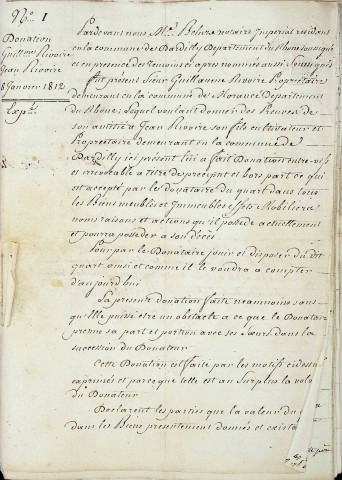 No. 1
Donation
Guillme Rivoire
Jean Rivoire
8 Janvier 1812
Expon.
Pardevant nous Mre. Beluze notaire Imperial residant
en la commune de Dardilly Departement du Rhone soussigné
et en presence des temoins ci apres nommés aussi soussignés
fut présent Sieur Guillaume Rivoire Proprietaire
demeurant en la commune de Departement
du Rhone; Lequel voulant donner des Preuves de
son amitié a Jean Rivoire son fils cultivateur et
Proprietaire demeurant en la commune de
Dardilly ici présent lui a fait Donation entre-vifs
et irrevocable a titre de préciput et hors part ce qui
est accepté par le donataire du quart dans tous
les Biens meubles et Immeubles effets Mobiliers
noms raisons et actions qu'il possede actuellement
et pourra posseder a son décès
Pour par le Donataire jouir et disposer du dit
quart ainsi et comme il le voudra a compter
d'aujourd'hui
La presente donation faite neanmoins sans
qu'elle puisse etre un obstacle a ce que le Donataire
prenne sa part et portion avec ses sœurs dans la
succession du Donateur
Cette Donation est faite par les motifs ci dessus
exprimés et parce que telle est au surplus la volo
du Donateur
Declarent les parties que la valeur du
dans les Biens presentement donnés et exista